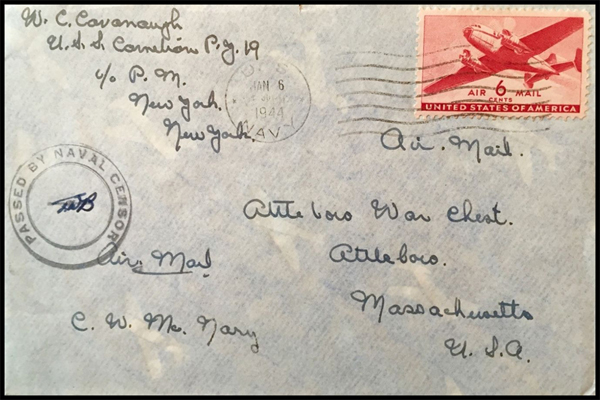 W. C. Cavanaugh
U.S.S Carnelian P.Y. 19
c/o P. M.
New York.
New York.
JAN 6
1944
NAVY
AIR 6 MAIL
CENTS
UNITED STATES OF AMERICA
Air Mail.
PASSED BY NAVAL CENSOR
Attleboro War Chest.
Attleboro.
Massachusetts
U.S.A.
Air Mail
C. W. Mc. Nary